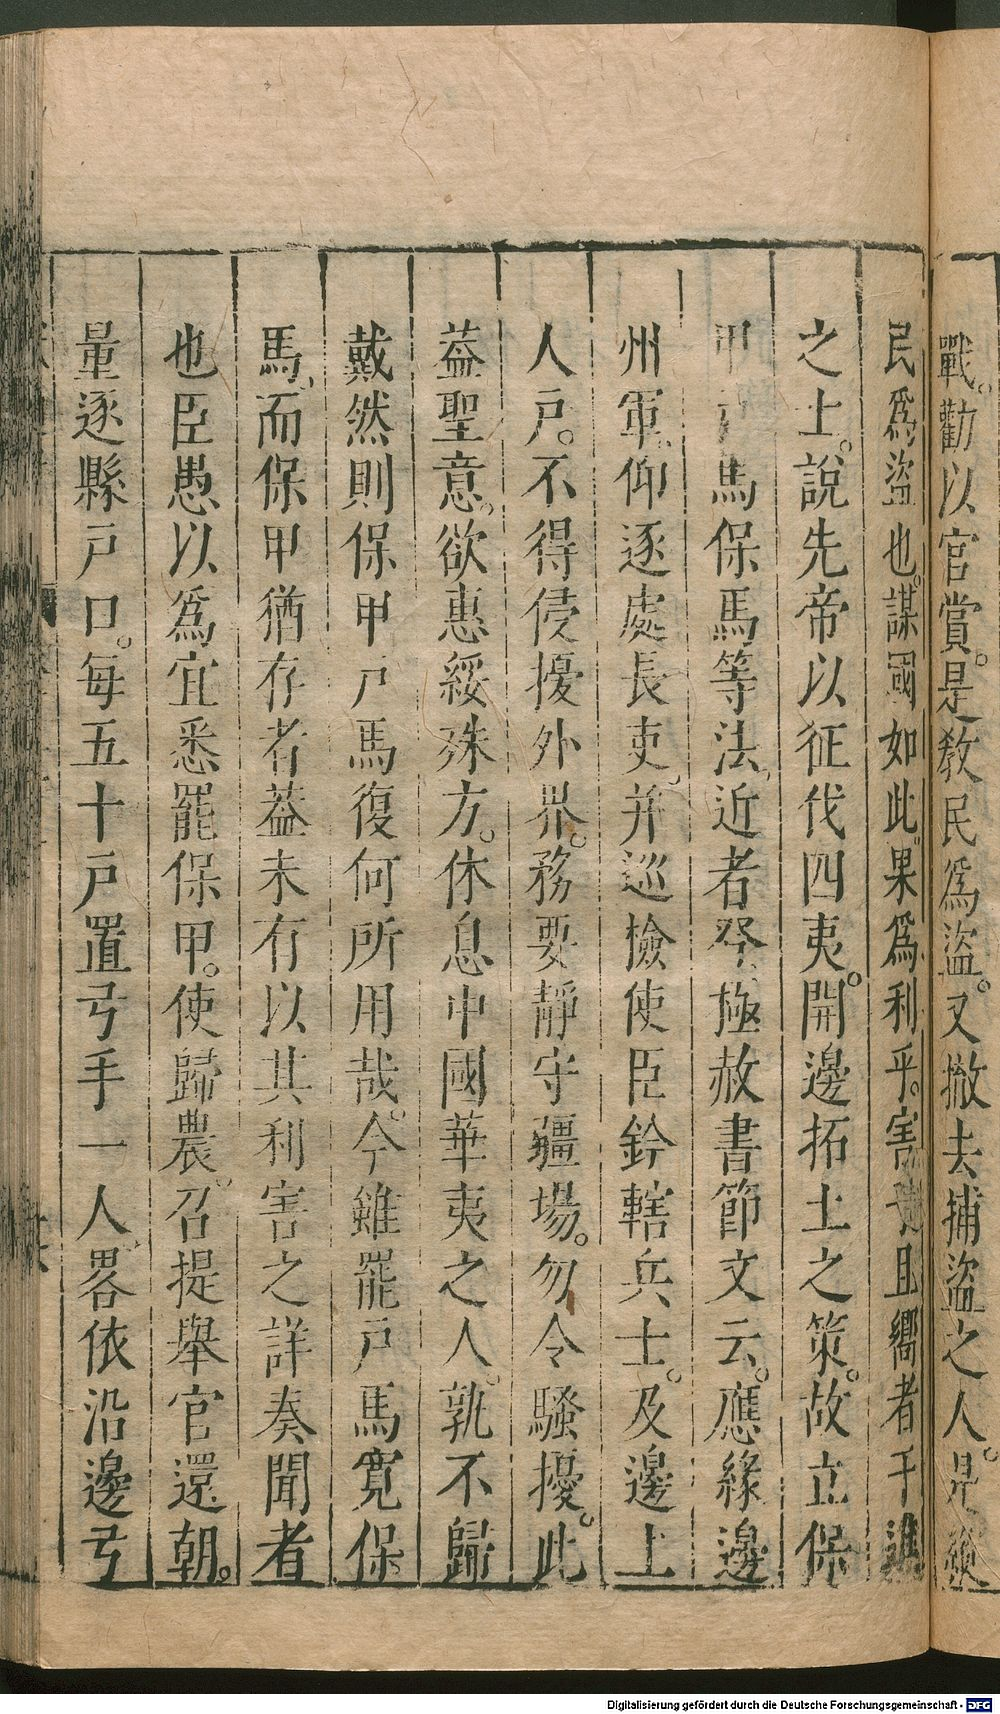 戰。勸以官賞。是教民爲盜。又撤去捕盜之人。是縱
民爲盜也。謀國如此。果爲利乎。害乎。且嚮者干進
之士。說先帝以征伐四夷。開邊拓土之策。故立保
甲戶馬保馬等法。近者登極赦書節文云。應緣邊
州軍。仰逐處長吏。并巡檢使臣鈐轄兵士。及邊上
人戶。不得侵擾外界。務要靜守疆場。勿令騷擾。此
葢聖意。欲惠綏殊方。休息中國華夷之人。孰不歸
戴然則保甲戶馬復何所用哉。今雖罷戶馬寬保
馬。而保甲猶存者葢未有以其利害之詳奏聞者
也臣愚以爲宜悉罷保甲。使歸農。召提舉官還朝。
量逐縣戶口。每五十戶置弓手一人畧依沿邊弓
Digitalisierung gefördert durch die Deutsche Forschungsgemeinschaft - DFG